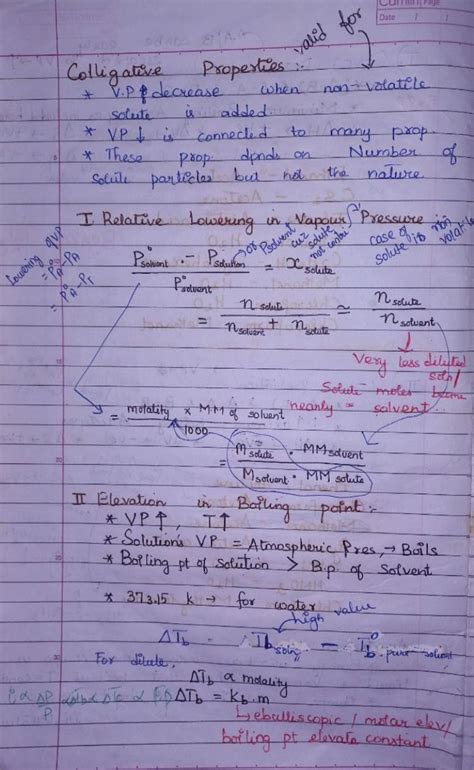 Date
valid for
Colligative Properties :-
* V.P decrease when non-volatile
solute is added
* VP↓ is connected to many prop.
* These prop. dpnds on Number of
solute particles but not the nature.
I Relative Lowering in Vapour Pressure
Lowering of VP
= P°A - PA
= P°A - PT
P°solvent - Psolution / P°solvent = x solute
or Psolvent cuz solute not contri
case of solute is non volatile
= n solute / n solvent + n solute ≃ n solute / n solvent
Very less diluted soln /
Solute moles
nearly = solvent
= molality × MM of solvent / 1000
= m solute · MM solvent / M solvent · MM solute
II Elevation in Boiling point :-
* VP↑, T↑
* Solution's VP = Atmospheric Pres, → Boils
* Boiling pt of solution > B.p. of Solvent
* 373.15 k → for water
high value
ΔTb = Tb soln - T°b pure solvent
For dilute,
ΔTb ∝ molality
ΔTb = Kb . m
↳ ebulliscopic / molar elev /
boiling pt elevate constant